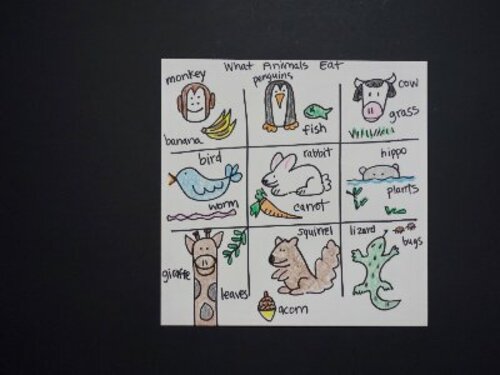 What Animals Eat
monkey
banana
penguins
fish
cow
grass
bird
worm
rabbit
carrot
hippo
plants
giraffe
leaves
squirrel
acorn
lizard
bugs